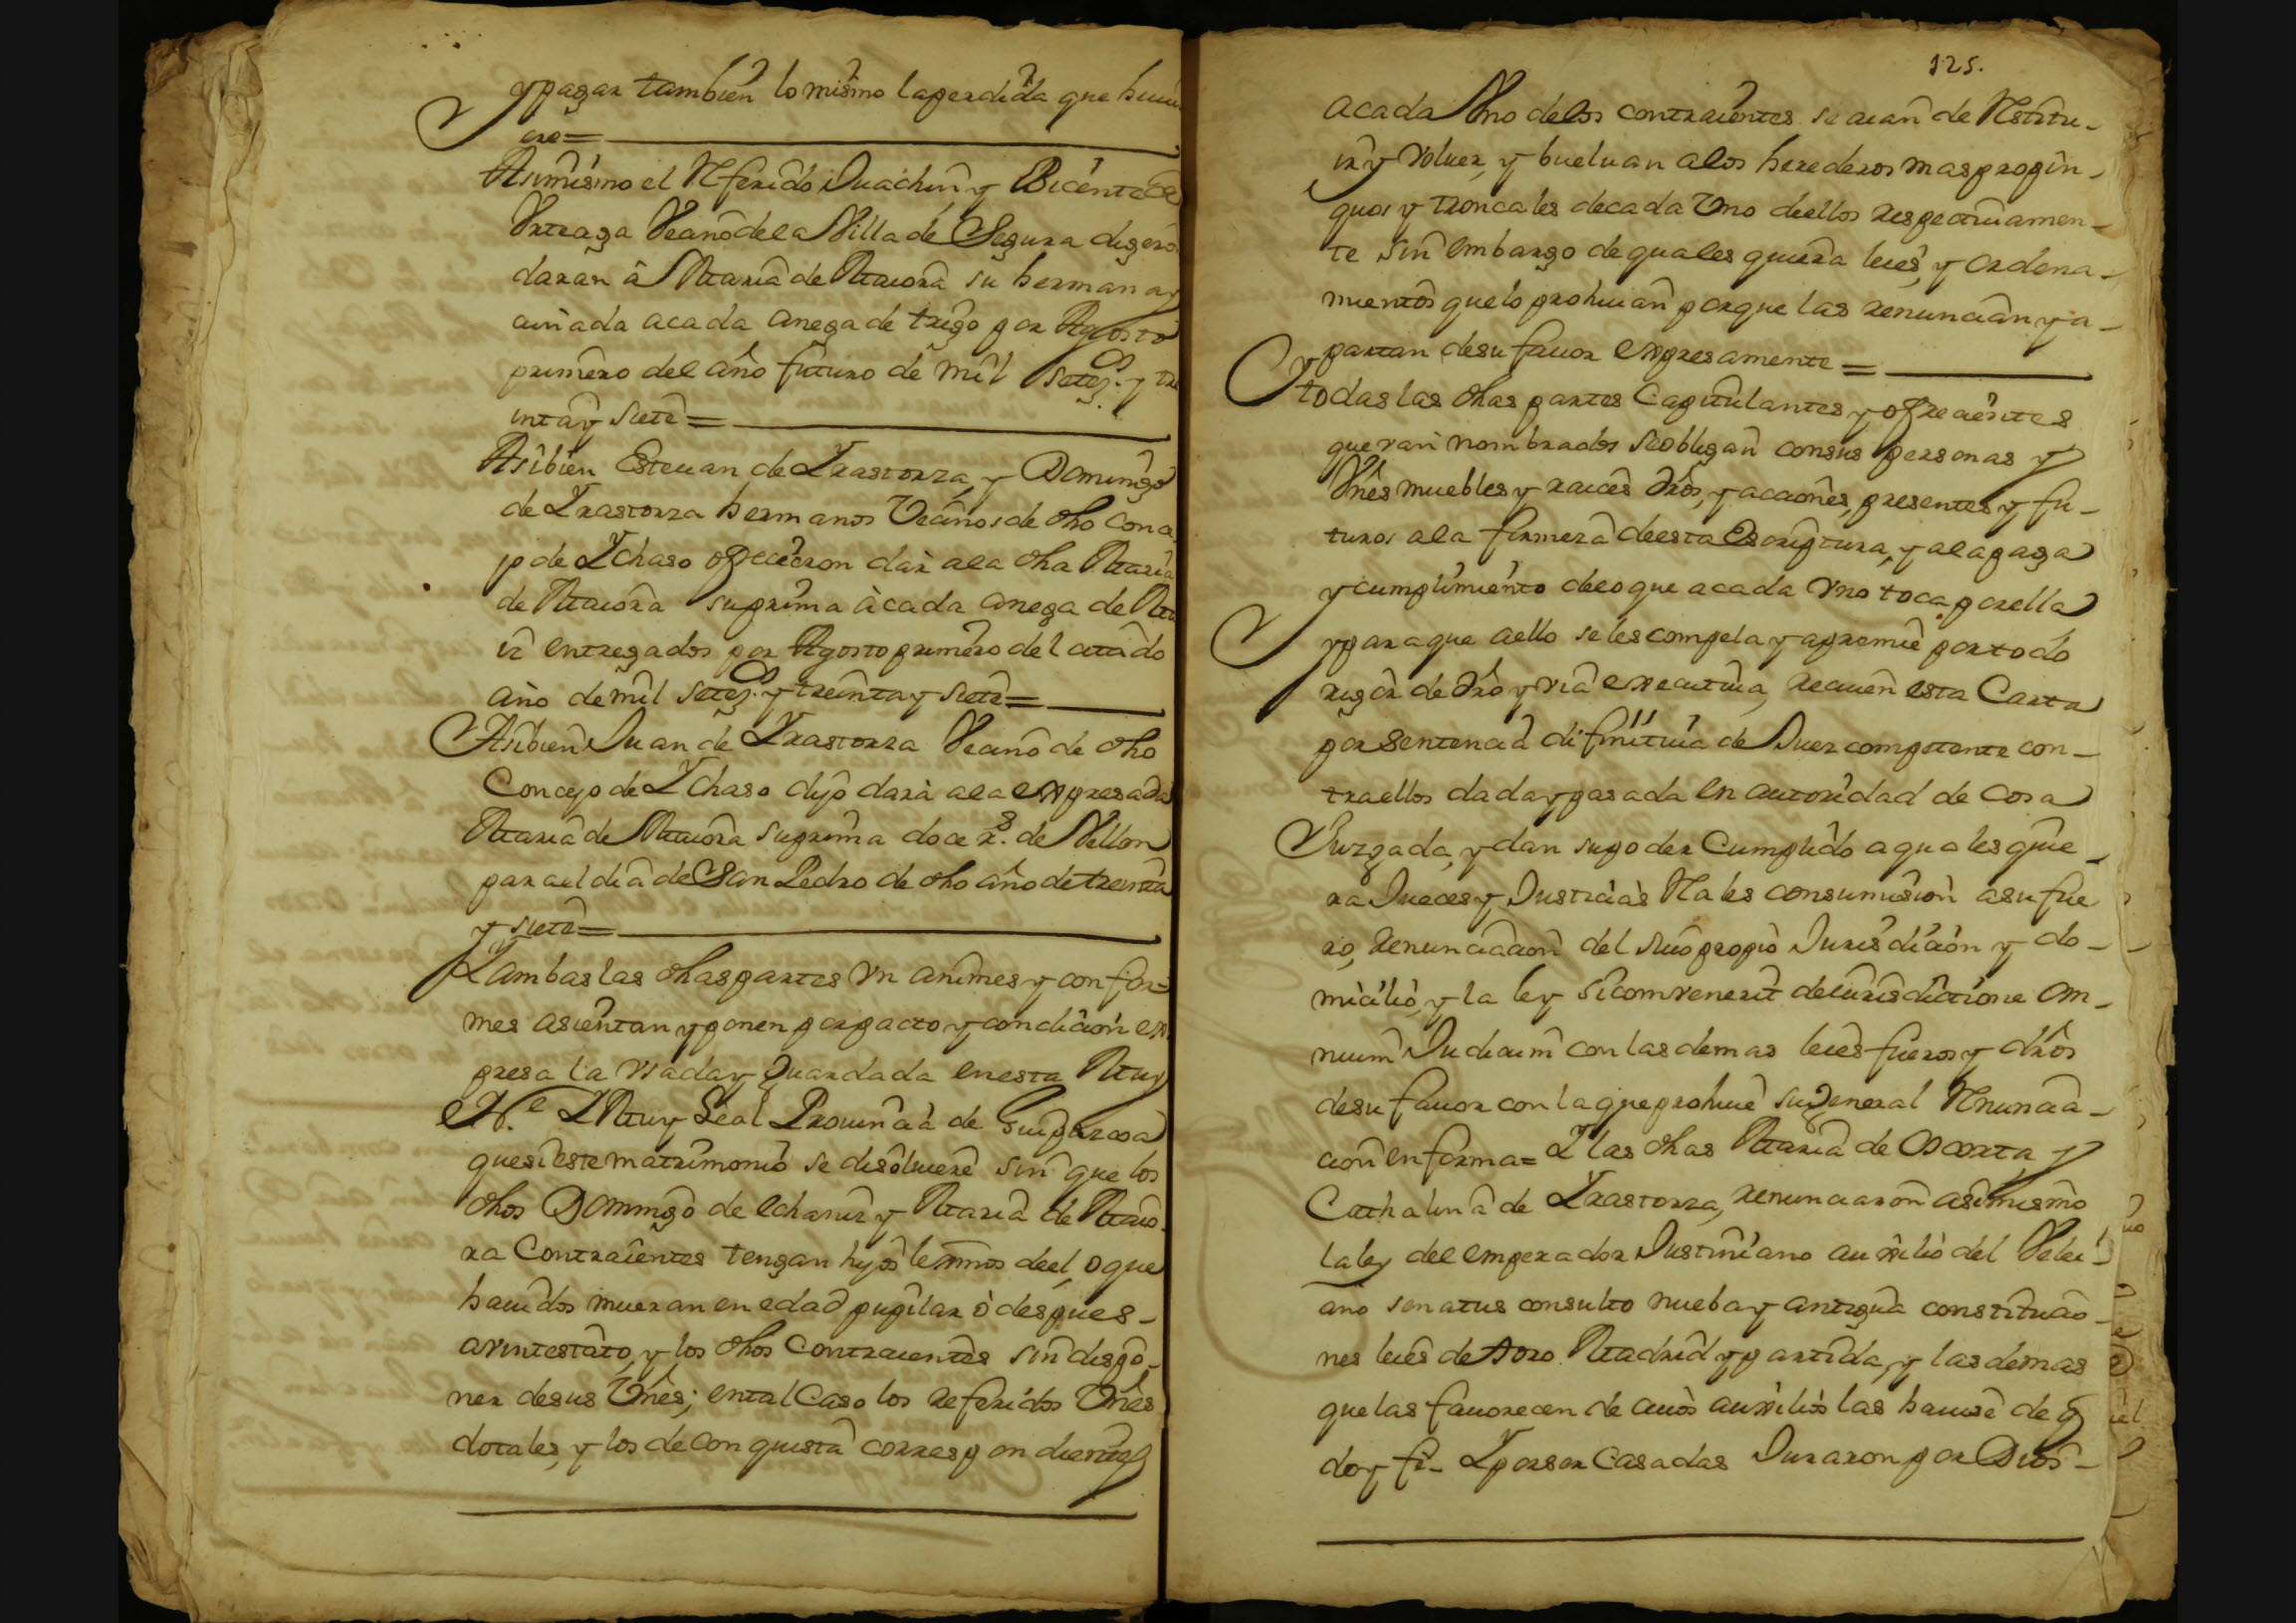 y pagar tambien lo mismo la perdida que huui
ere=
Asimismo el Referido Juachin, y Bicente de
Urteaga Vecino de la Villa de Segura digeron
daran â Maria de Maiora su hermana y
cuñada a cada anega de trigo por Agosto
primero del año futuro de mil setez.os y tre
inta y siete=
Asibien Esteuan de Yrastorza, y Domingo
de Yrastorza hermanos Vecinos de dho conce
jo de Ychaso ofrecieron dar a la dha Maria
de Maiora su prima à cada anega de Ma
iz entregados por Agosto primero del citado
año de mil setez.os y treinta y siete=
Asibien Juan de Yrastorza Vecino de dho
Concejo de Ychaso dijo darà a la expresada
Maria de Maiora su prima doce r.s de Vellon
para el dia de San Pedro de dho año de treinta
y siete=
Y ambas las dhas partes vnanimes y confor=
mes asientan y ponen por pacto y condicion ex
presa la vsada y Guardada en esta Muy
N.e Y Muy Leal Prouincia de Guipuzcoa
que si este matrimonio se disoluiere sin que los
dhos Domingo de echaniz y Maria de Maio
ra Contraientes tengan hijos lexmos de el, o que
hauidos mueran en edad pupilar ò despues-
avintestato, y los dhos Contraientes sin dispo-
ner de sus Vnes; en tal Caso los referidos Vnes
dotales, y los de conquista correspondientes
125.
a cada Vno de los contraientes se aian de Restitu-
ir y Voluer, y bueluan a los herederos mas propin-
quos y troncales de cada Vno de ellos respectiuamen-
te sin embargo de quales quiera leies, y ordena-
mientos que lo prohiuan porque las renuncian y a-
partan de su fauor expresamente=
Y todas las dhas partes Capitulantes y ofrecientes
que van nombrados se obligan con sus personas y
Vnes muebles y raices dros, y acciones, presentes y fu-
turos a la firmeza de esta Escriptura, y a la paga
y cumplimiento de lo que a cada vno toca por ella
y para que a ello se les compela y apremie por todo
rigor de dro y via executiua, reciuen esta Carta
por sentencia difinitiuia de Juez competente con-
tra ellos dada y pasada en autoridad de Cosa
Juzgada, y dan su poder Cumplido a quales quie-
ra Jueces y Justicias Rales con sumision a su fue
ro, renunciacion del suio propio Jurisdicion y do-
micilio, y la ley sicomvenerit de iurisdictione om-
nium Judicum con las demas leies fueros y dros
de su fauor con la que prohiue su general Renuncia-
cion en forma= Y las dhas Maria de Oscorta y
Cathalina de Yrastorza, renunciaron asimismo
la ley del emperador Justiniano auxilio del Velei-
ano senatus consulto nueba y antigua constitucio-
nes leies de toro Madrid y partida, y las demas
que las fauorecen de cuios auxilios las hauisè de q
doy fe- Y por ser Casadas Juraron por Dios-